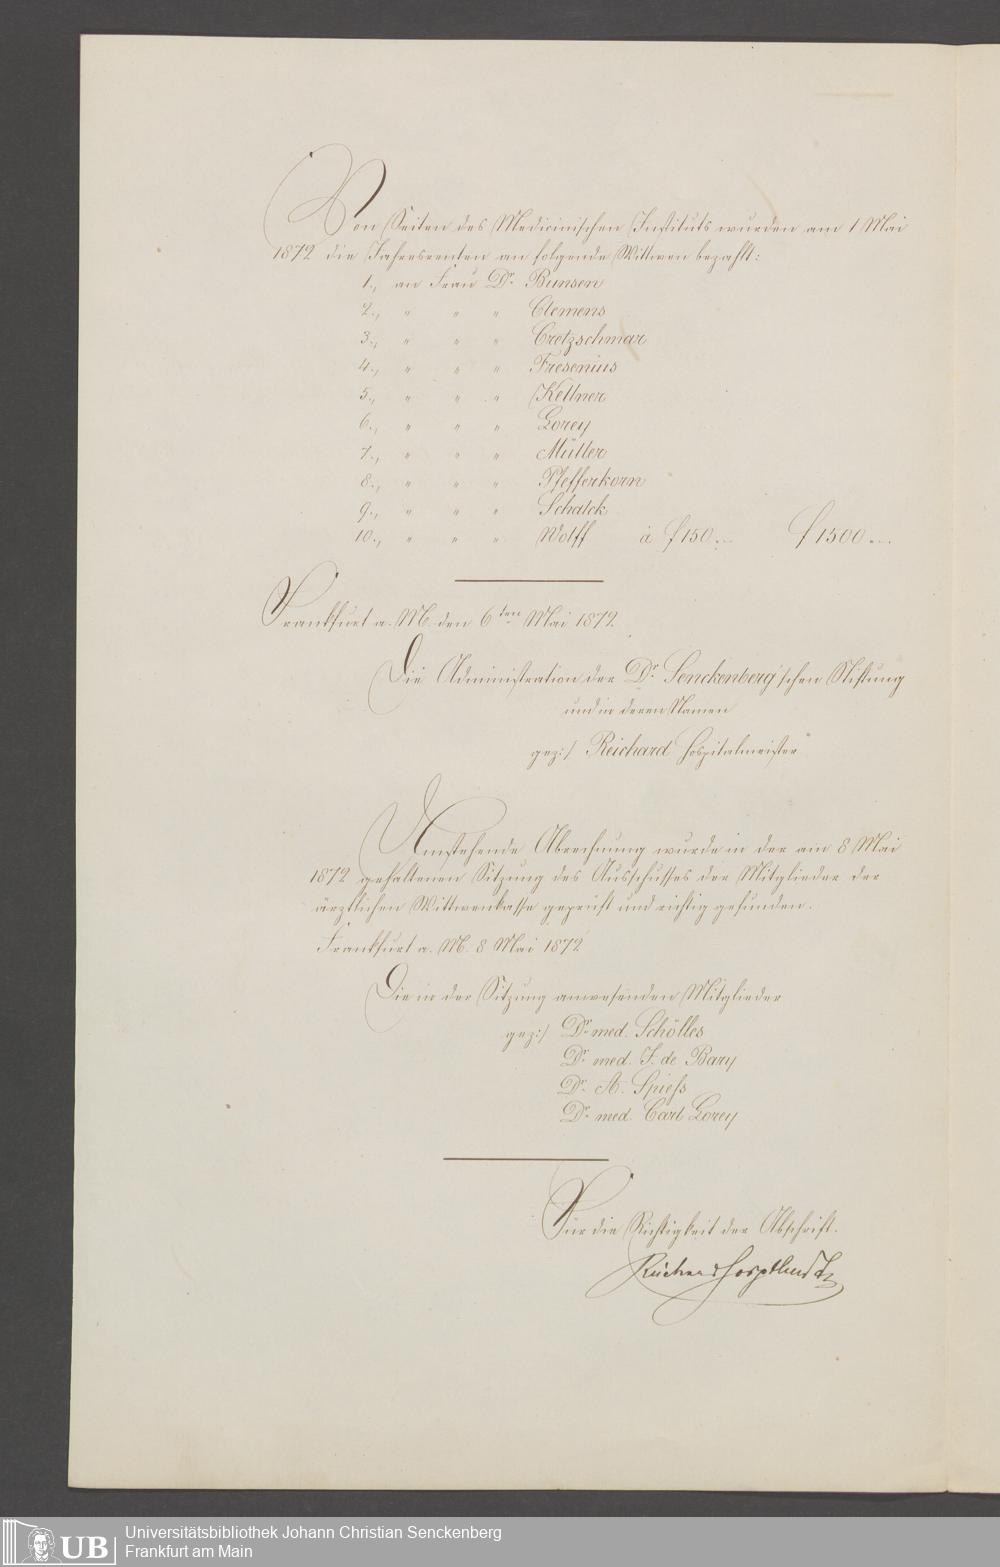 Von Seiten des Medicinischen Instituts wurden am 1 Mai
1872 die Jahresrenten an folgende Wittwen bezahlt:
1., an Frau Dr. Bunsen
2., " " " Clemens
3., " " " Cretzschmar
4., " " " Fresenius
5., " " " Kellner
6., " " " Lorey
7., " " " Müller
8., " " " Pfefferkorn
9., " " " Schalck
10., " " " Wolff à f 150.— f 1500.—
Frankfurt a. M. den 6ten Mai 1872
Die Administration der Dr. Senckenberg'schen Stiftung
und in deren Namen
gez:/ Reichard Hospitalmeister
Umstehende Abrechnung wurde in der am 8 Mai
1872 gehaltenen Sitzung des Ausschusses der Mitglieder der
ärztlichen Wittwenkasse geprüft und richtig gefunden.
Frankfurt a. M. 8 Mai 1872
Die in der Sitzung anwesenden Mitglieder
gez:/ Dr. med. Schölles
Dr. med. J. de Bary
Dr. A. Spieſs
Dr. med. Carl Lorey
Für die Richtigkeit der Abschrift.
UB Universitätsbibliothek Johann Christian Senckenberg
Frankfurt am Main